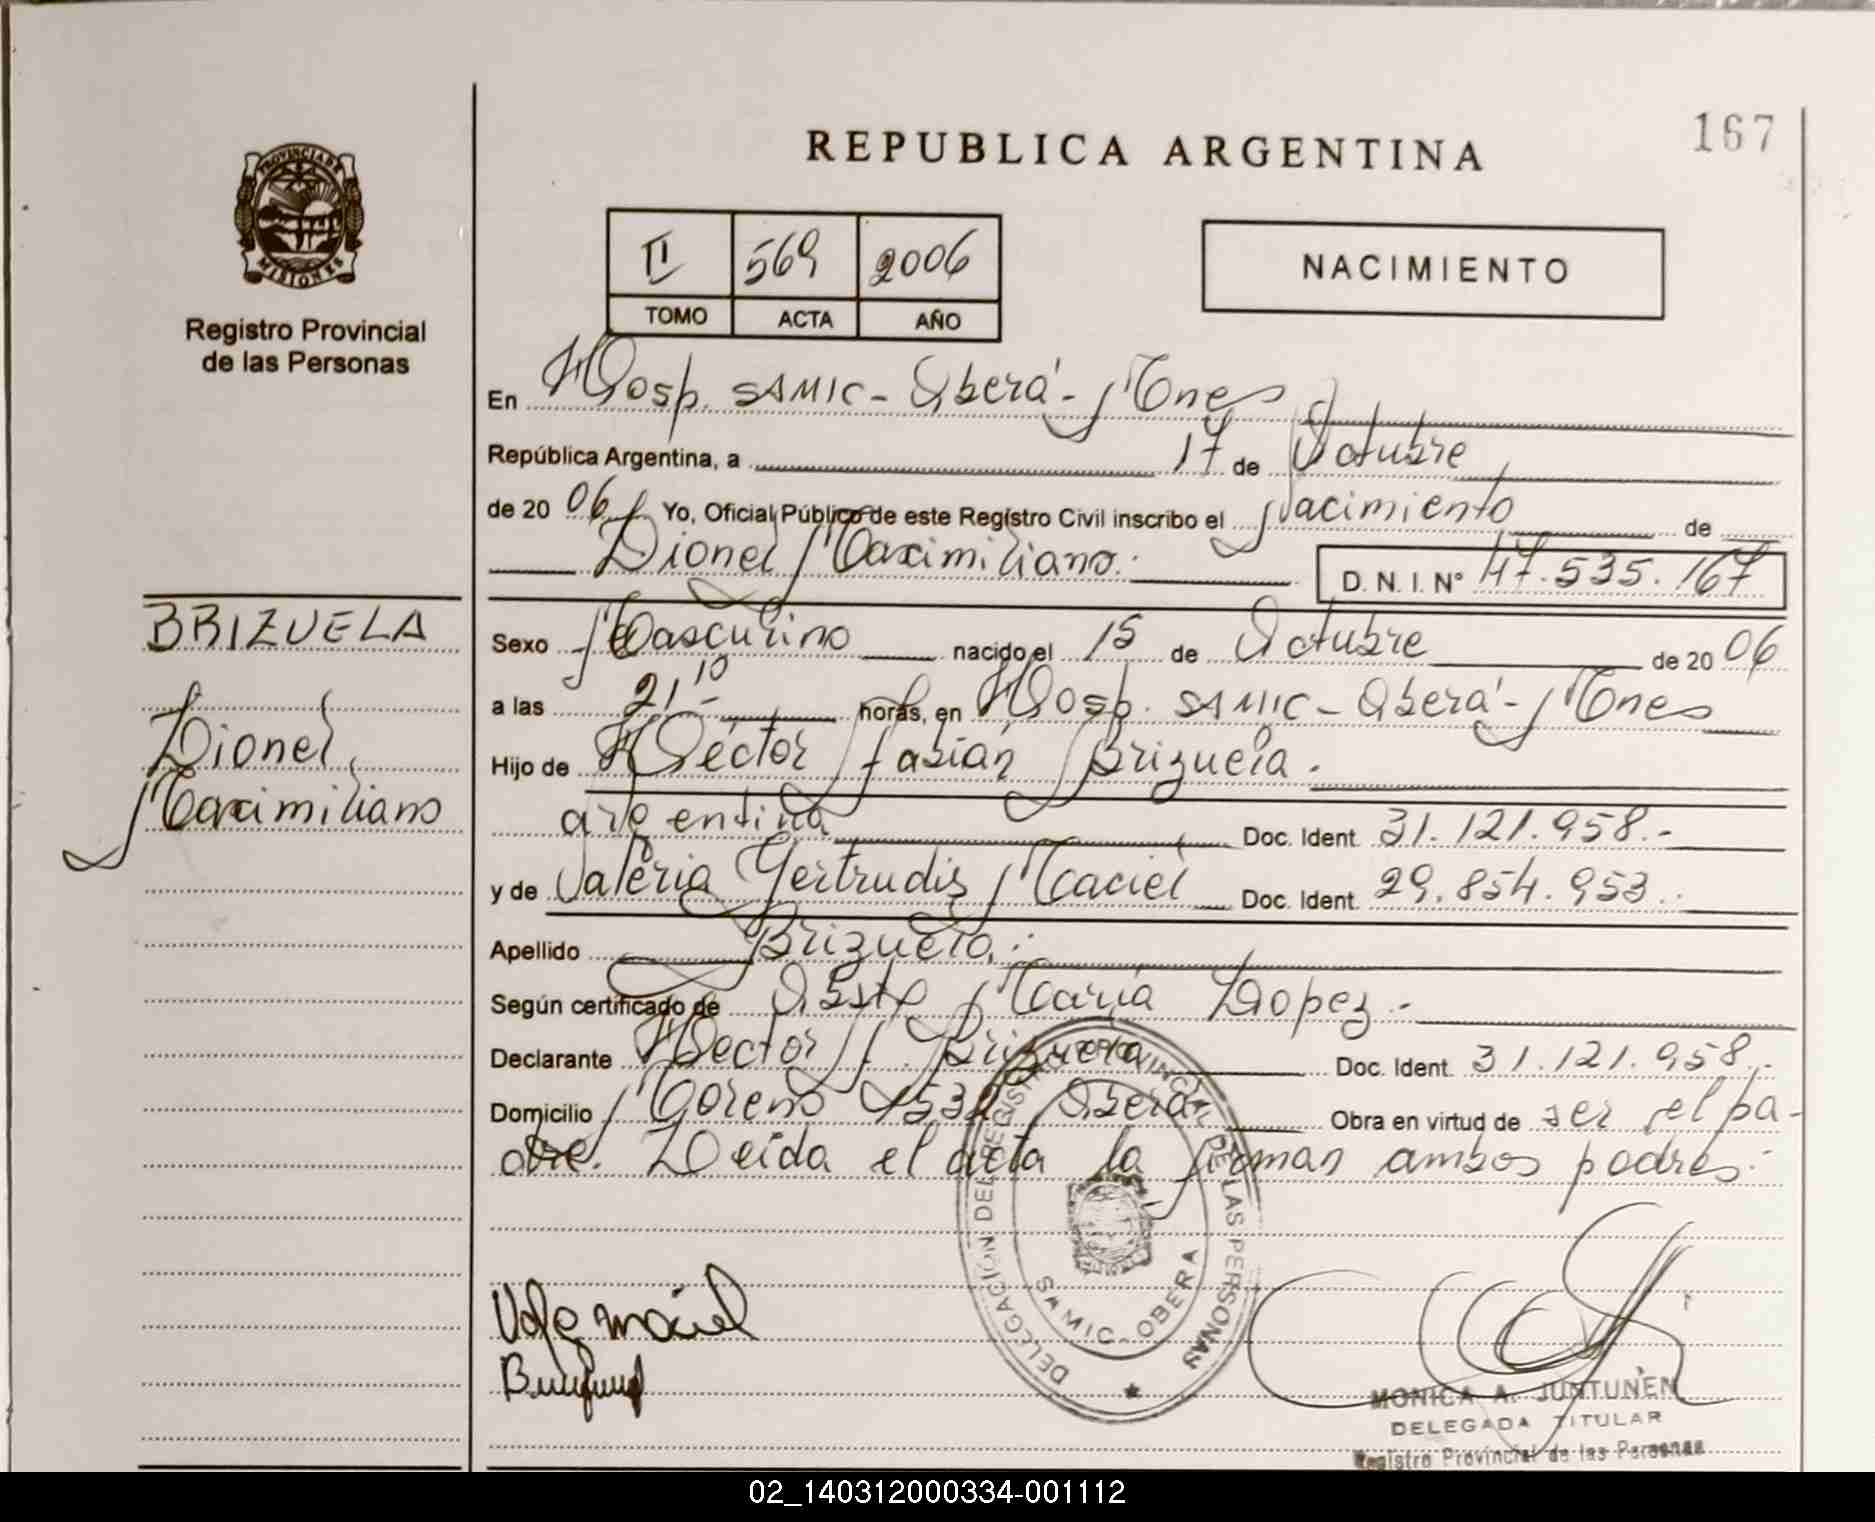 167
REPUBLICA ARGENTINA
PROVINCIA DE
MISIONES
Registro Provincial
de las Personas
II 569 2006
TOMO ACTA AÑO
NACIMIENTO
En Hosp. SAMIC - Oberá - Mnes
República Argentina, a 17 de Octubre
de 20 06 Yo, Oficial Público de este Registro Civil inscribo el Nacimiento de
Lionel Maximiliano. D. N. I. Nº 47.535.167
BRIZUELA
Lionel
Maximiliano
Sexo Masculino nacido el 15 de Octubre de 20 06
a las 21,10 - horas, en Hosp. SAMIC - Oberá - Mnes
Hijo de Héctor Fabián Brizuela.
argentina Doc. Ident. 31.121.958.-
y de Valeria Gertrudis Maciel Doc. Ident. 29.854.953.
Apellido Brizuela.
Según certificado de Obst. María Lopez.-
Declarante Hector F. Brizuela Doc. Ident. 31.121.958.
Domicilio Moreno Oberá Obra en virtud de ser el pa-
dre. Leída el acta la firman ambos padres.-
DELEGACIÓN DEL REGISTRO PROVINCIAL DE LAS PERSONAS
SAMIC - OBERA
Maciel
MONICA A. JUNTUNEN
DELEGADA TITULAR
Registro Provincial de las Personas
02_140312000334-001112